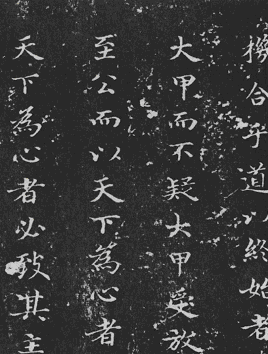 撥合乎道以終始者
大甲而不疑大甲受放
至公而以天下為心者
天下為心者必致其主